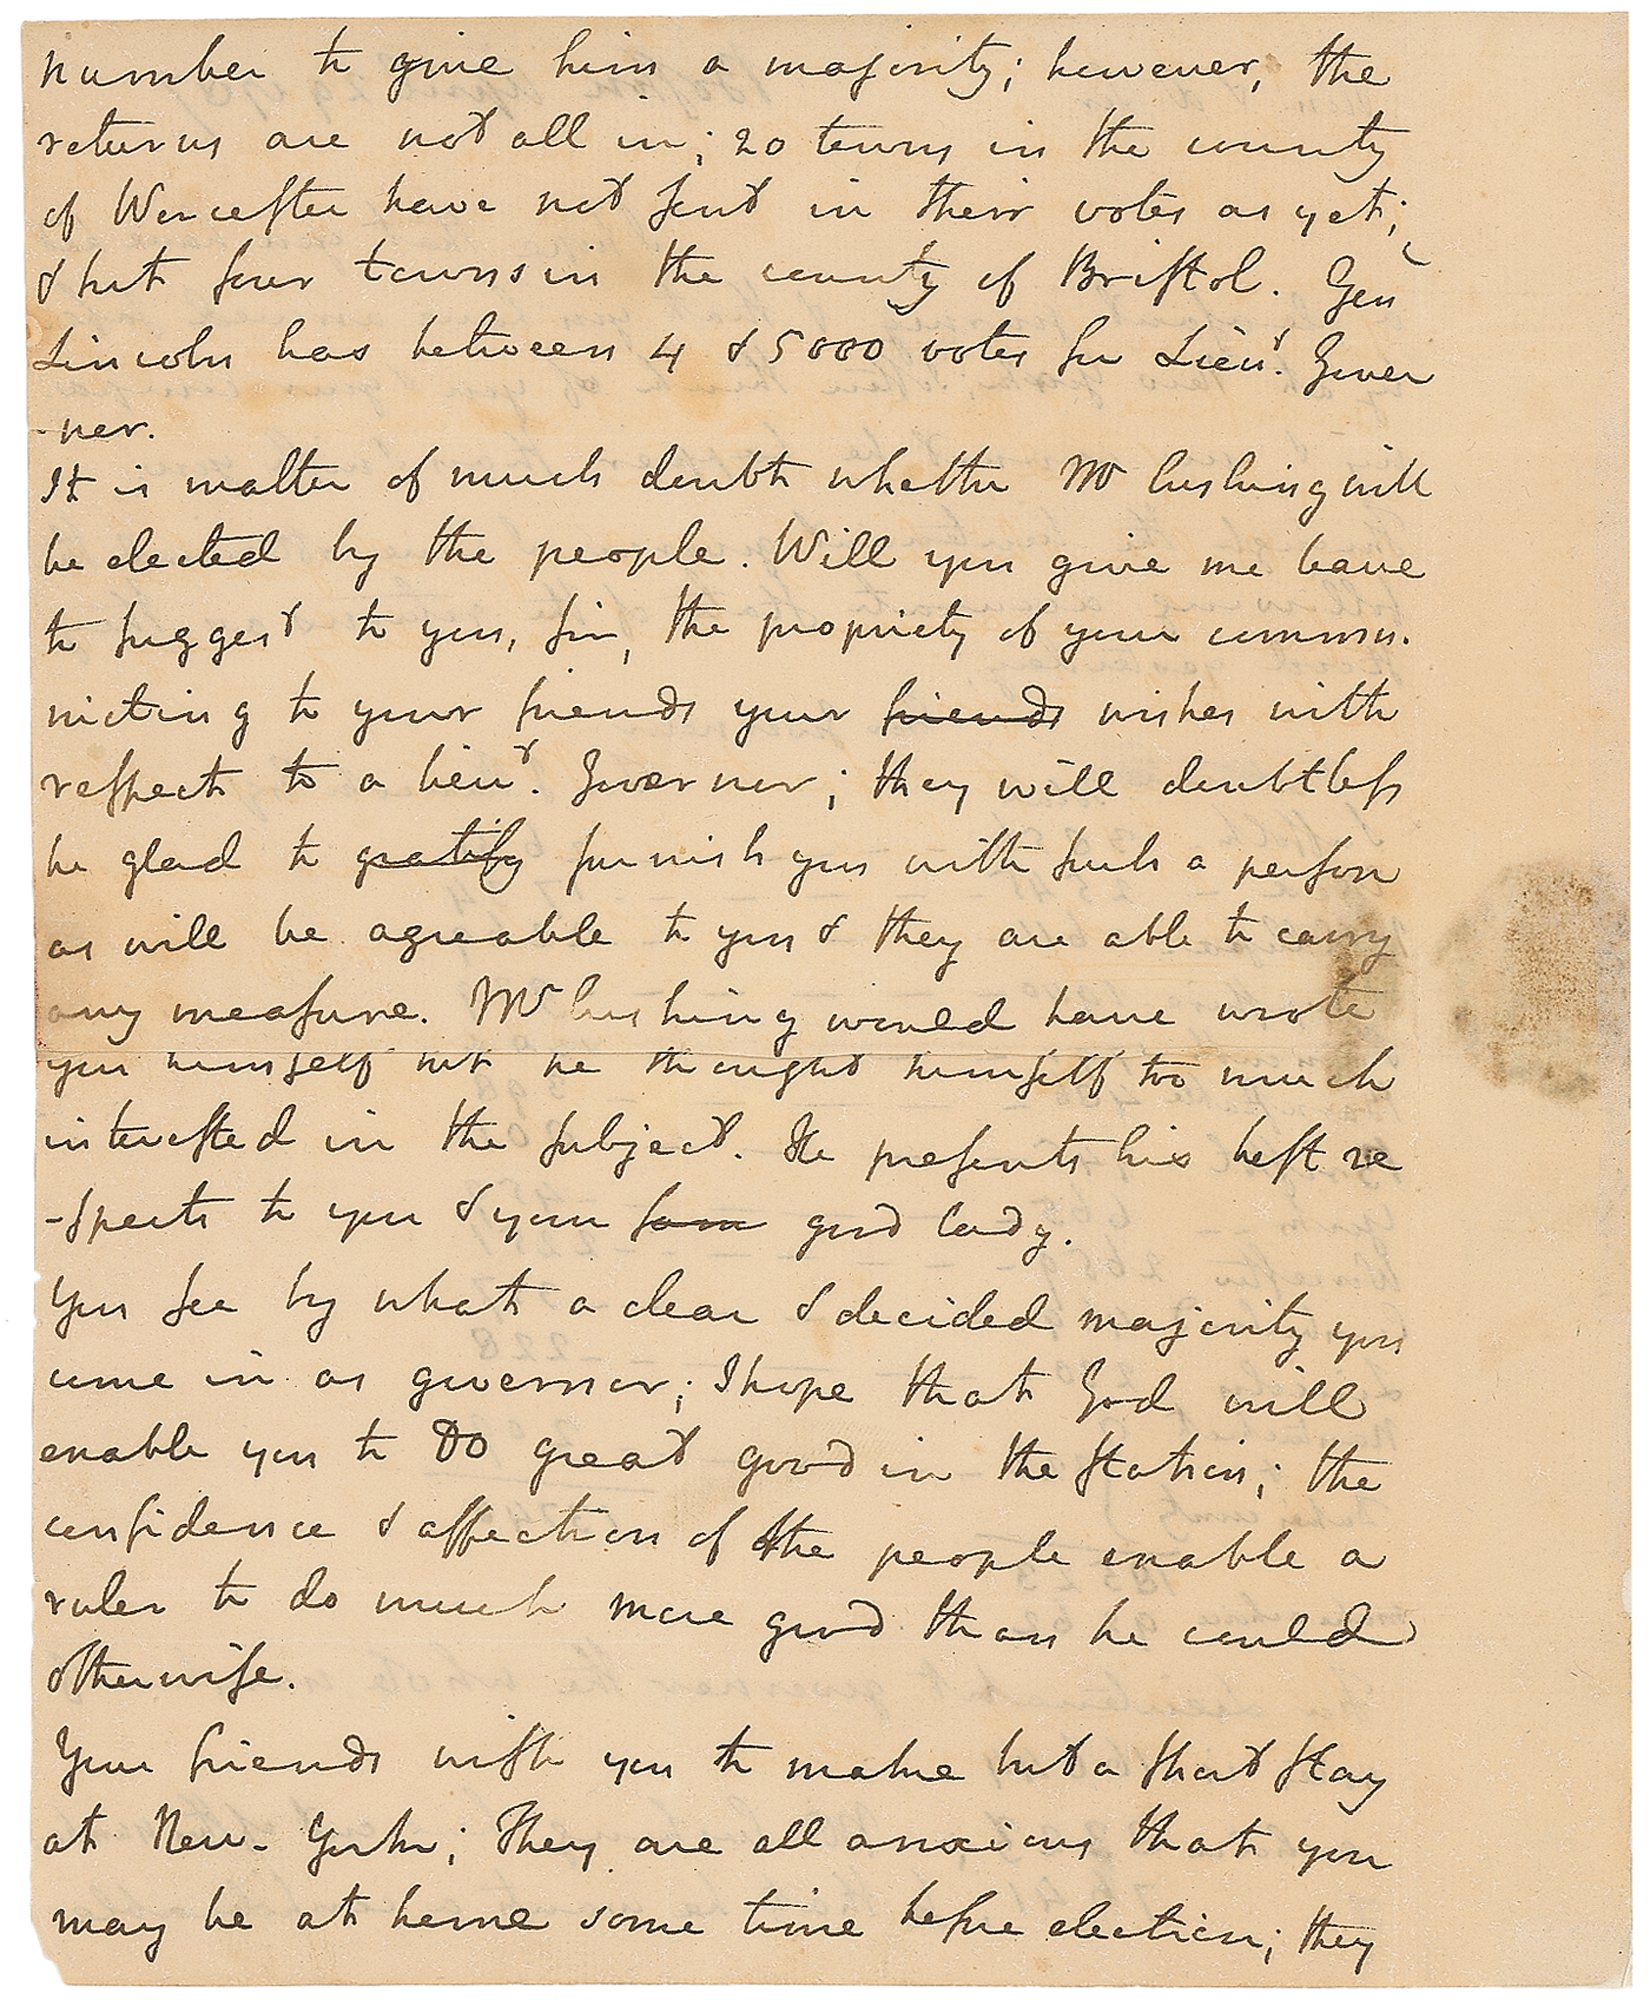 number to give him a majority; however, the
returns are not all in; 20 towns in the county
of Worcester have not sent in their votes as yet;
& but four towns in the county of Bristol. Gen
Lincoln has between 4 & 5000 votes for Lieu.t Gover
-nor.
It is matter of much doubt whether Mr Cushing will
be elected by the people. Will you give me leave
to suggest to you, sir, the propriety of your commu.
nicting to your friends your friends wishes with
respect to a lieu.t Governor; they will doubtless
be glad to gratify furnish you with such a person
as will be agreable to you & they are able to carry
any measure. Mr Cushing would have wrote
you himself but he thought himself too much
interested in the subject. He presents his best re
-spects to you & your fam good lady.
You see by what a clear & decided majority you
come in as governor; I hope that God will
enable you to Do great good in the station; the
confidence & affection of the people enable a
ruler to do much more good than he could
otherwise.
Your friends wish you to make but a short stay
at New-York; They are all anxious that you
may be at home some time before election; they